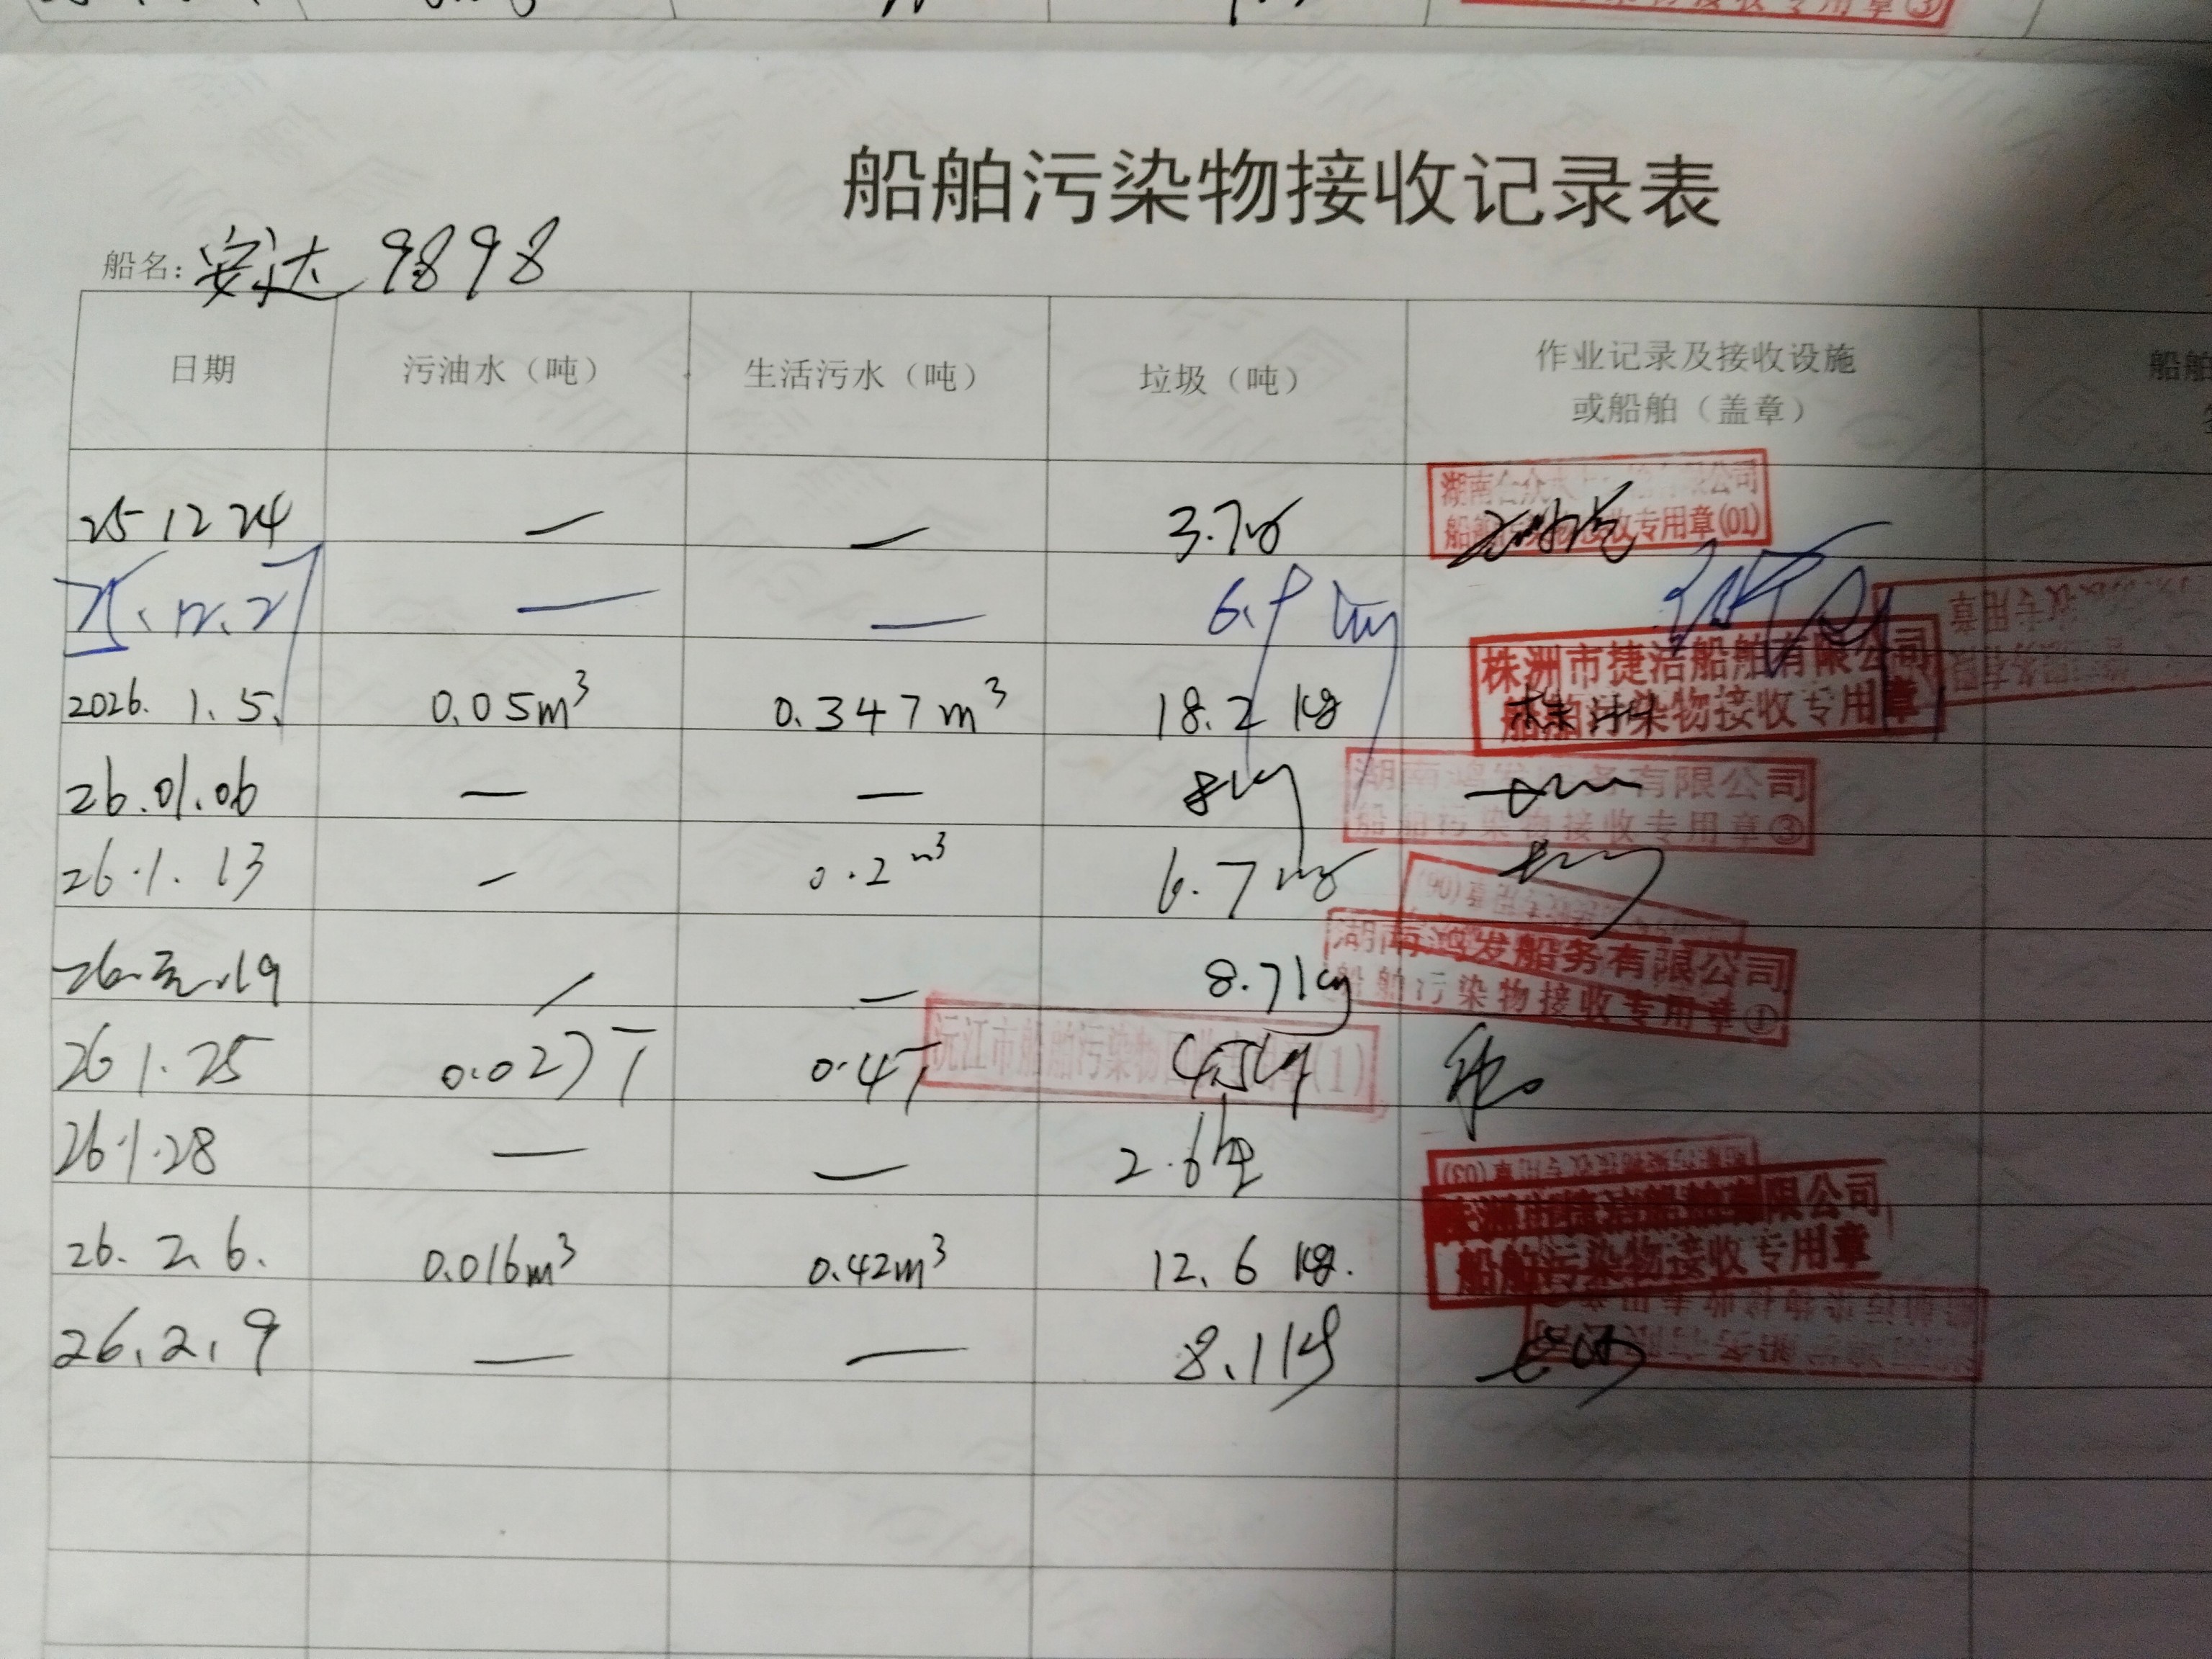 船舶污染物接收记录表
船名: 安达 9898
日期 污油水（吨） 生活污水（吨） 垃圾（吨） 作业记录及接收设施 船舶
或船舶（盖章）
25 12 24 — — 3.7kg
湖南 有限公司
船舶污染物接收专用章(01)
25.12.27 — — 6.9 kg
2026. 1. 5. 0.05m³ 0.347m³ 18.2 kg 株洲
株洲市捷洁船舶有限公司
船舶污染物接收专用章
26.01.06 — — 8kg
湖南鸿发船务有限公司
船舶污染物接收专用章③
26.1.13 — 0.2m³ 6.7kg
26. 元.19 — — 8.7kg
湖南鸿发船务有限公司
船舶污染物接收专用章①
26 1.25 0.027T 0.4T 4.5kg
沅江市船舶污染物回收专用章(1)
26.1.28 — — 2.6kg
船舶污染物接收专用章(03)
26. 2. 6. 0.016m³ 0.42m³ 12.6 kg.
株洲市捷洁船舶有限公司
船舶污染物接收专用章
26.2.9 — — 8.1kg